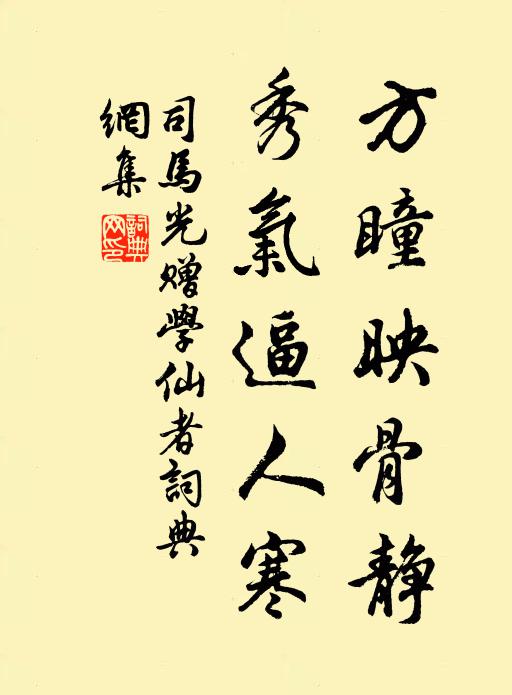 方瞳映骨静
秀氣逼人寒
司馬光贈學仙者詞典
網集
詞典
网印